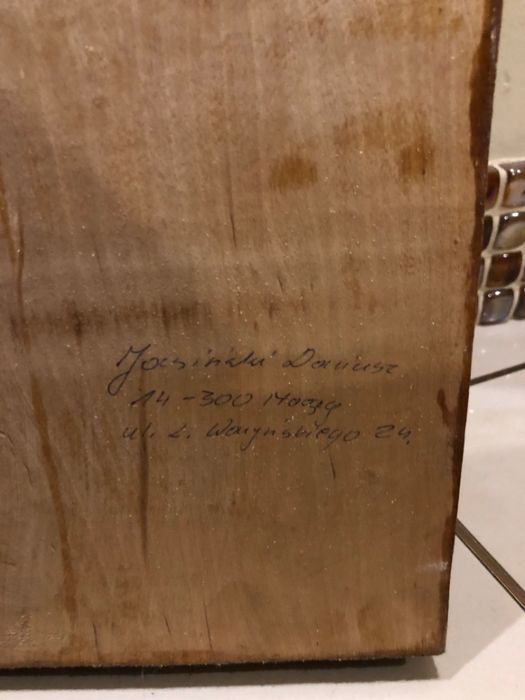 Jasiński Dariusz
14-300 Morąg
ul. L. Waryńskiego 24.